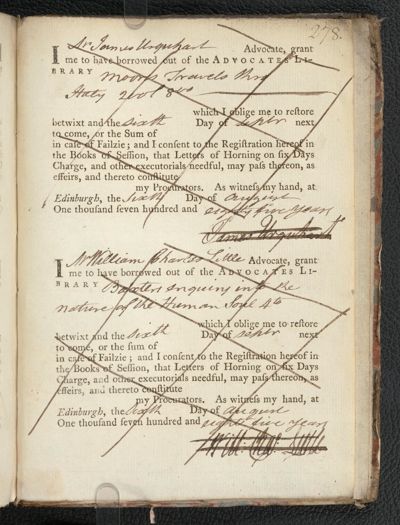 278.
I Mr James Urquhart Advocate, grant
me to have borrowed out of the ADVOCATES LI-
BRARY Moores Travels thro
Italy 2 vol 8vo
which I oblige me to reſtore
betwixt and the sixth Day of Septr next
to come, or the Sum of
in caſe of Failzie; and I conſent to the Regiſtration hereof in
the Books of Seſſion, that Letters of Horning on ſix Days
Charge, and other executorials needful, may paſs thereon, as
effeirs, and thereto conſtitute
my Procurators. As witneſs my hand, at
Edinburgh, the Sixth Day of August
One thouſand ſeven hundred and eighty five years
James Urquhart
I Mr William Charles Little Advocate, grant
me to have borrowed out of the ADVOCATES LI-
BRARY Baxters enquiry into the
nature of the Human Soul 4to
which I oblige me to reſtore
betwixt and the sixth Day of Septr next
to come, or the Sum of
in caſe of Failzie; and I conſent to the Regiſtration hereof in
the Books of Seſſion, that Letters of Horning on ſix Days
Charge, and other executorials needful, may paſs thereon, as
effeirs, and thereto conſtitute
my Procurators. As witneſs my hand, at
Edinburgh, the Sixth Day of August
One thouſand ſeven hundred and eighty five years
Will: Chas: Little